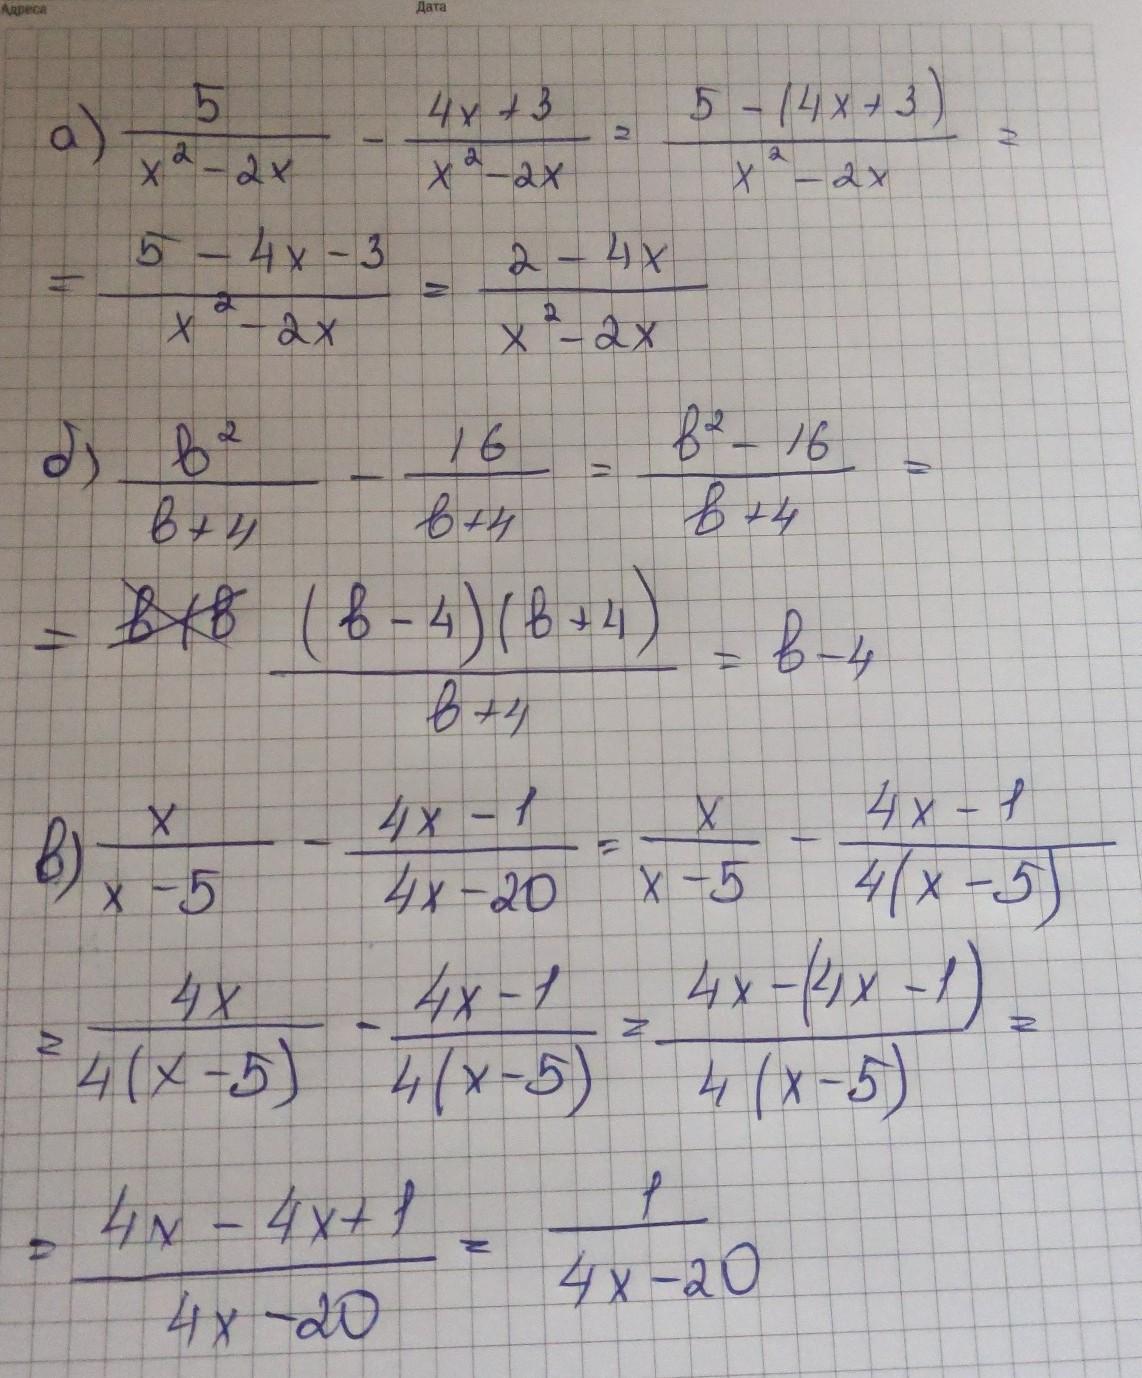 Адреса Дата
а) 5/(x² - 2x) - (4x + 3)/(x² - 2x) = (5 - (4x + 3))/(x² - 2x) =
= (5 - 4x - 3)/(x² - 2x) = (2 - 4x)/(x² - 2x)
б) в²/(в + 4) - 16/(в + 4) = (в² - 16)/(в + 4) =
= в(в ((в - 4)(в + 4))/(в + 4) = в - 4
в) x/(x - 5) - (4x - 1)/(4x - 20) = x/(x - 5) - (4x - 1)/(4(x - 5))
= 4x/(4(x - 5)) - (4x - 1)/(4(x - 5)) = (4x - (4x - 1))/(4(x - 5)) =
= (4x - 4x + 1)/(4x - 20) = 1/(4x - 20)